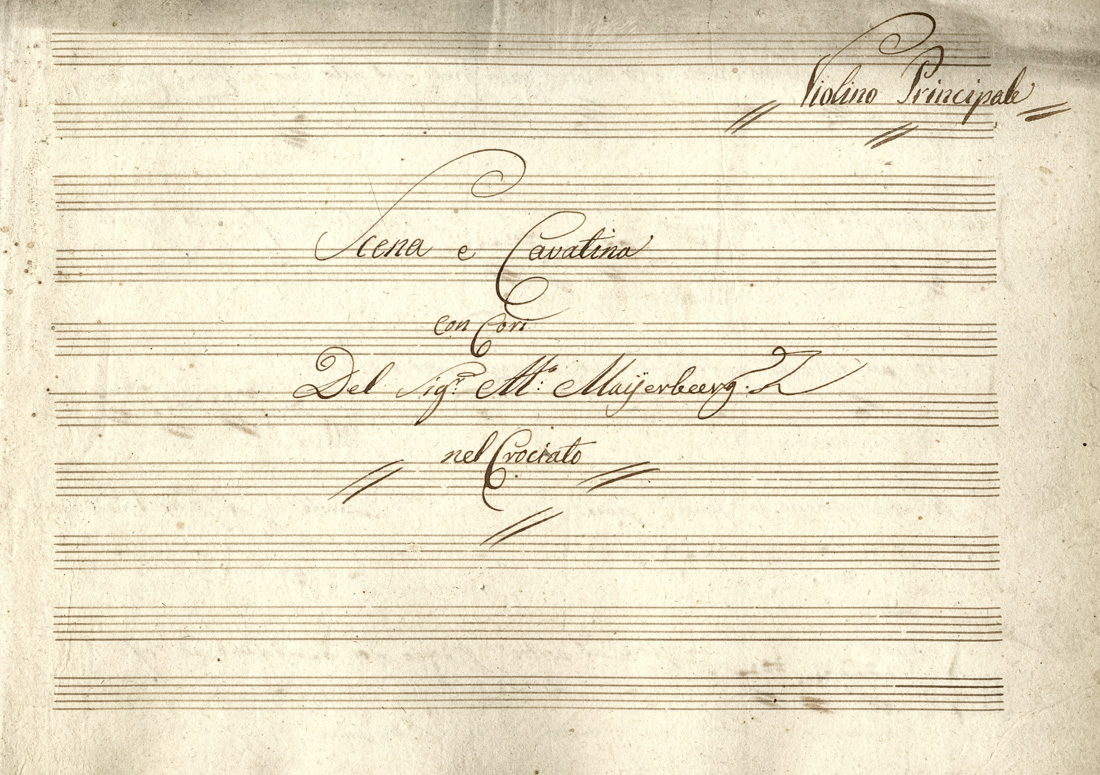 Violino Principale
Scena e Cavatina
con Cori
Del Sigr. Mo: Maÿerbeerg.
nel Crociato